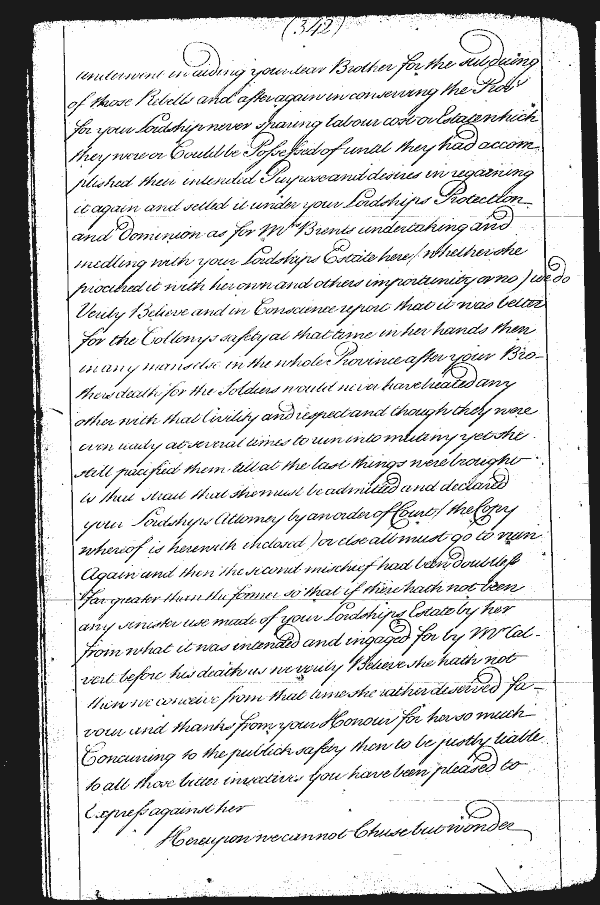 (342)
underwent in aiding your dear Brother for the subduing
of those Rebells and after again in conserving the Prov.
for your Lordship never sparing labour cost or Estate which
they were or Could be Possessed of until they had accom
plished their intended Purpose and desires in regaining
it again and setled it under your Lordships Protection
and Dominion as for Mrs. Brents undertaking and
medling with your Lordships Estate here (whether she
procured it with her own and others importunity or no) we do
Verily Believe and in Conscience report that it was better
for the Collonys safety at that time in her hands then
in any mans else in the whole Province after your Bro-
thers death for the Soldiers would never have treated any
other with that Civility and respect and though they were
even ready at several times to run into mutiny yet she
still pacified them till at the last things were brought
to that strait that she must be admitted and declared
your Lordships Attorney by an order of Court (the Copy
whereof is herewith inclosed) or else all must go to ruin
Again and then the second mischief had been doubtless
far greater then the former so that if there hath not been
any sinister use made of your Lordships Estate by her
from what it was intended and engaged for by Mr. Cal-
vert before his death as we verily Believe she hath not
then we conceive from that time she rather deserved fa-
vour and thanks from your Honour for her so much
Concurring to the publick safety then to be justly liable
to all those bitter invectives you have been pleased to
Express against her
Hereupon we cannot Chuse but wonder